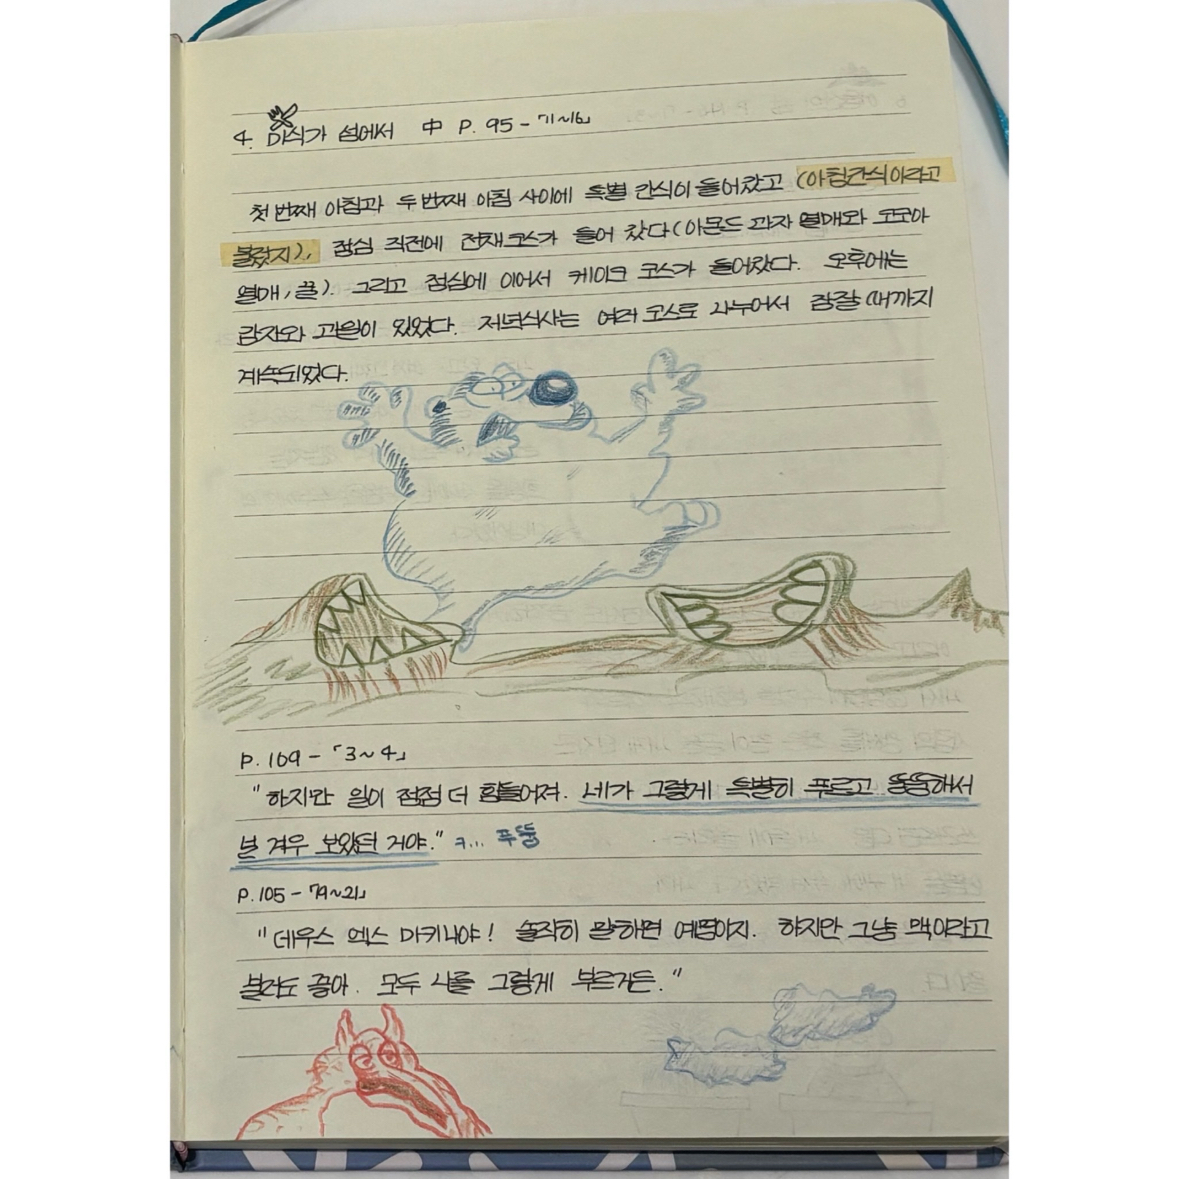 4. 미식가 섬에서 中 P. 95 - 「11~16」
첫 번째 아침과 두 번째 아침 사이에 특별 간식이 들어갔고 (아침간식이라고
불렀지), 점심 직전에 전채코스가 들어 갔다(아몬드 과자 열매와 코코아
열매, 꿀). 그리고 점심에 이어서 케이크 코스가 들어갔다. 오후에는
감자와 과일이 있었다. 저녁식사는 여러 코스로 나누어서 잠잘 때까지
계속되었다.
P. 169 - 「3~4」
"하지만 일이 점점 더 힘들어져. 네가 그렇게 특별히 푸르고 뚱뚱해서
난 겨우 보았던 거야." ㅋ... 푸뚱
P. 105 - 「19~21」
"데우스 엑스 마키나야! 솔직히 말하면 예명이지. 하지만 그냥 맥이라고
불러도 좋아. 모두 나를 그렇게 부르거든."